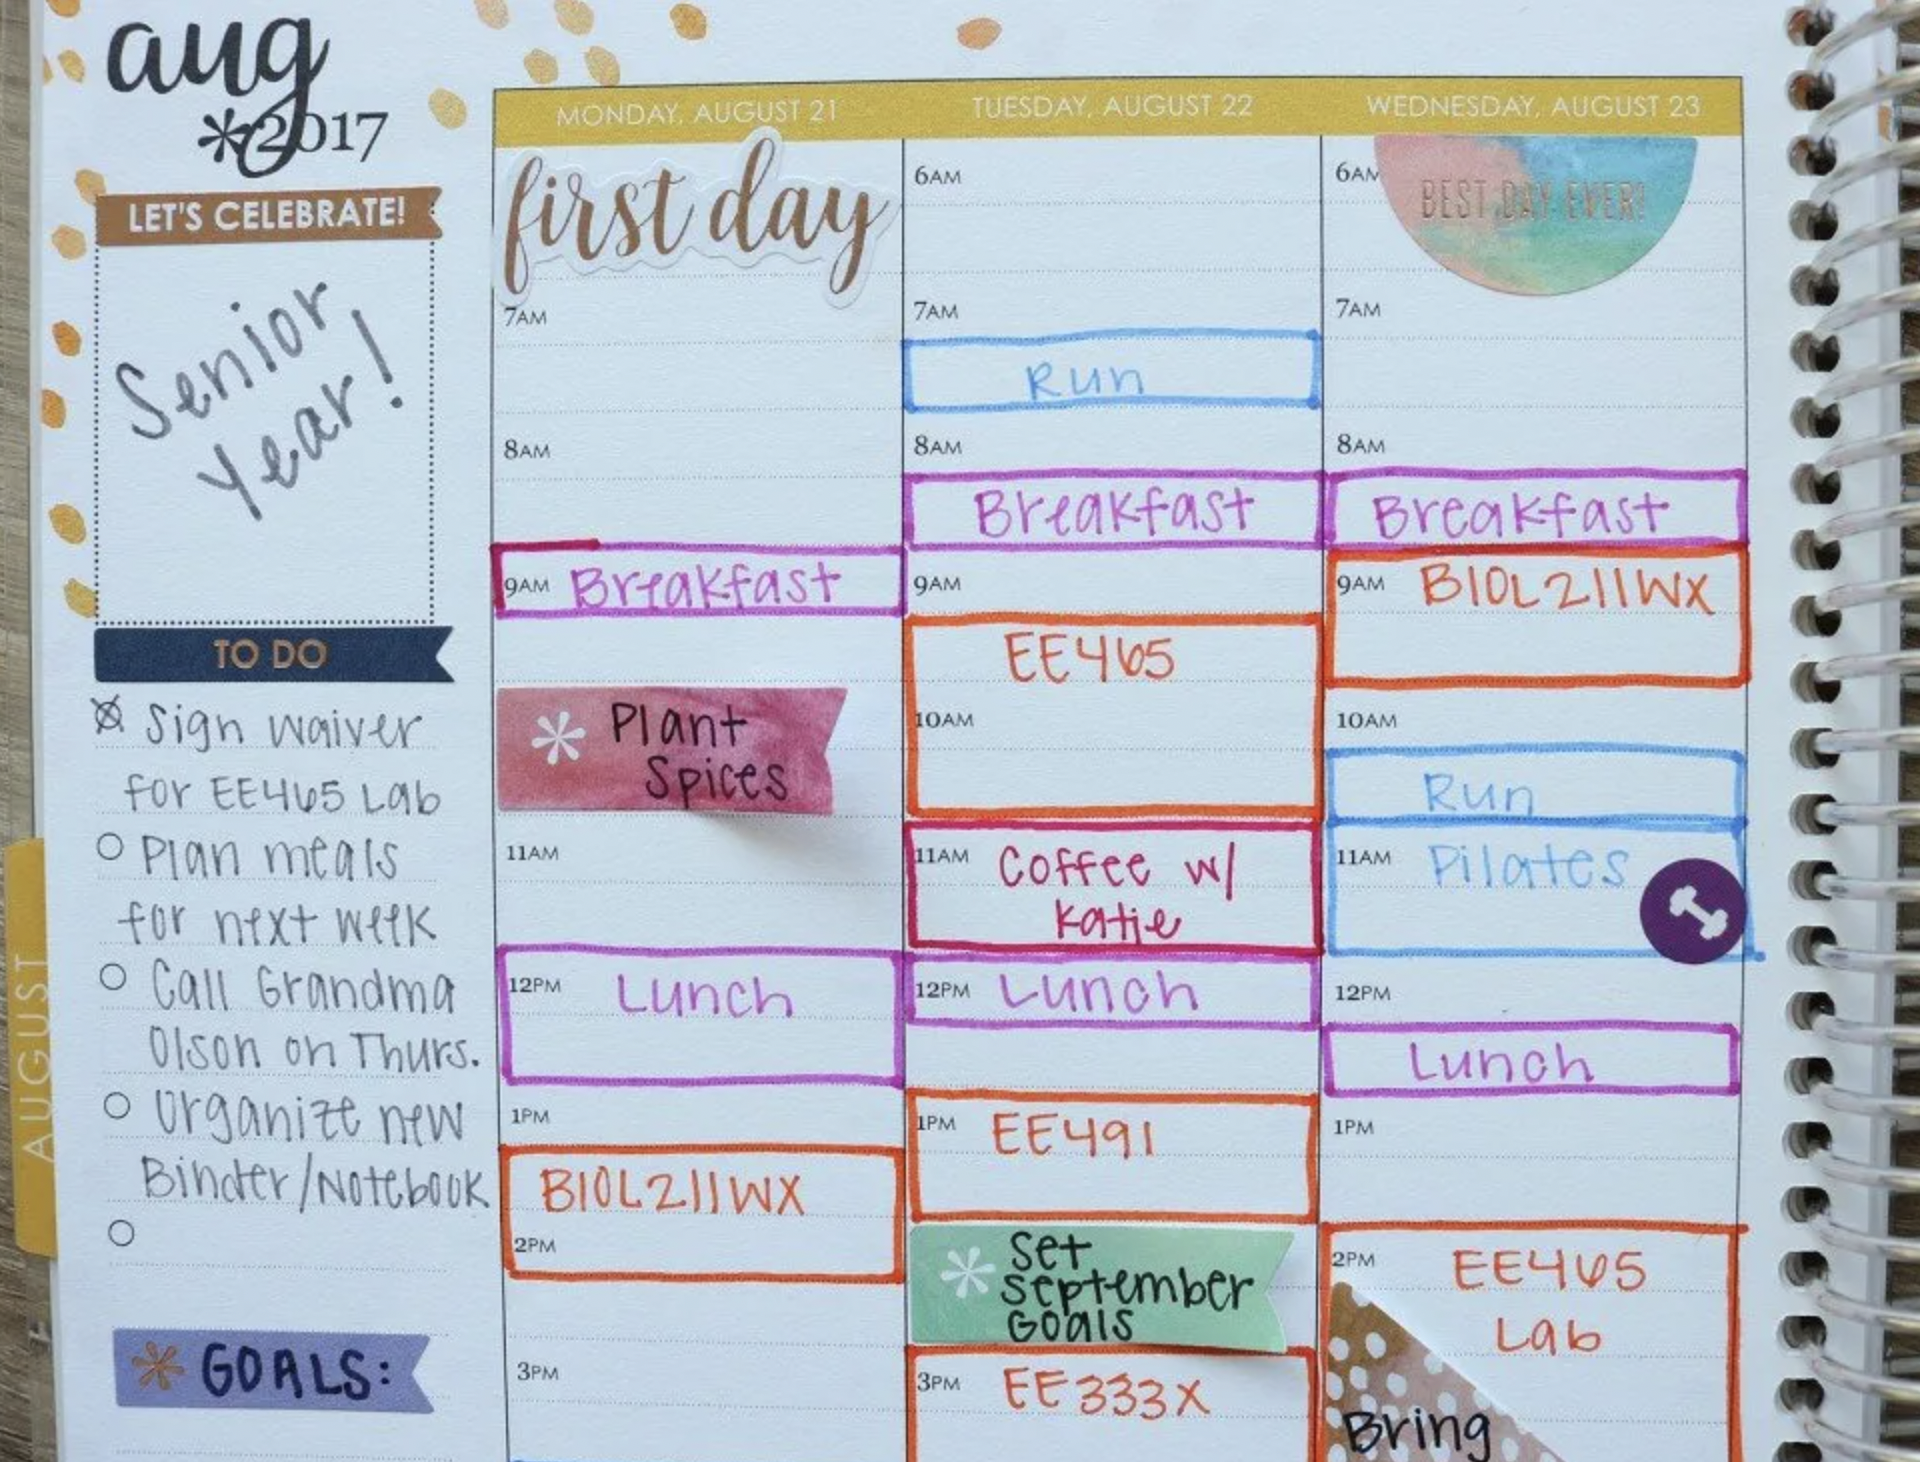 aug
*2017
LET'S CELEBRATE!
Senior
Year!
TO DO
Sign waiver
for EE465 Lab
Plan meals
for next week
Call Grandma
Olson on Thurs.
Organize new
Binder/Notebook
GOALS:
AUGUST
MONDAY, AUGUST 21
first day
7AM
8AM
9AM Breakfast
Plant
Spices
11AM
12PM Lunch
1PM
BIOL211WX
2PM
3PM
TUESDAY, AUGUST 22
6AM
7AM
Run
8AM
Breakfast
9AM
EE465
10AM
11AM Coffee w/
Katie
12PM Lunch
1PM EE491
Set
September
Goals
3PM EE333X
WEDNESDAY, AUGUST 23
6AM
BEST DAY EVER!
7AM
8AM
Breakfast
9AM BIOL211WX
10AM
Run
11AM Pilates
12PM
Lunch
1PM
2PM EE465
Lab
Bring